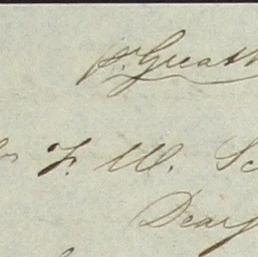 pr. Great
F. W. Sc
Dear